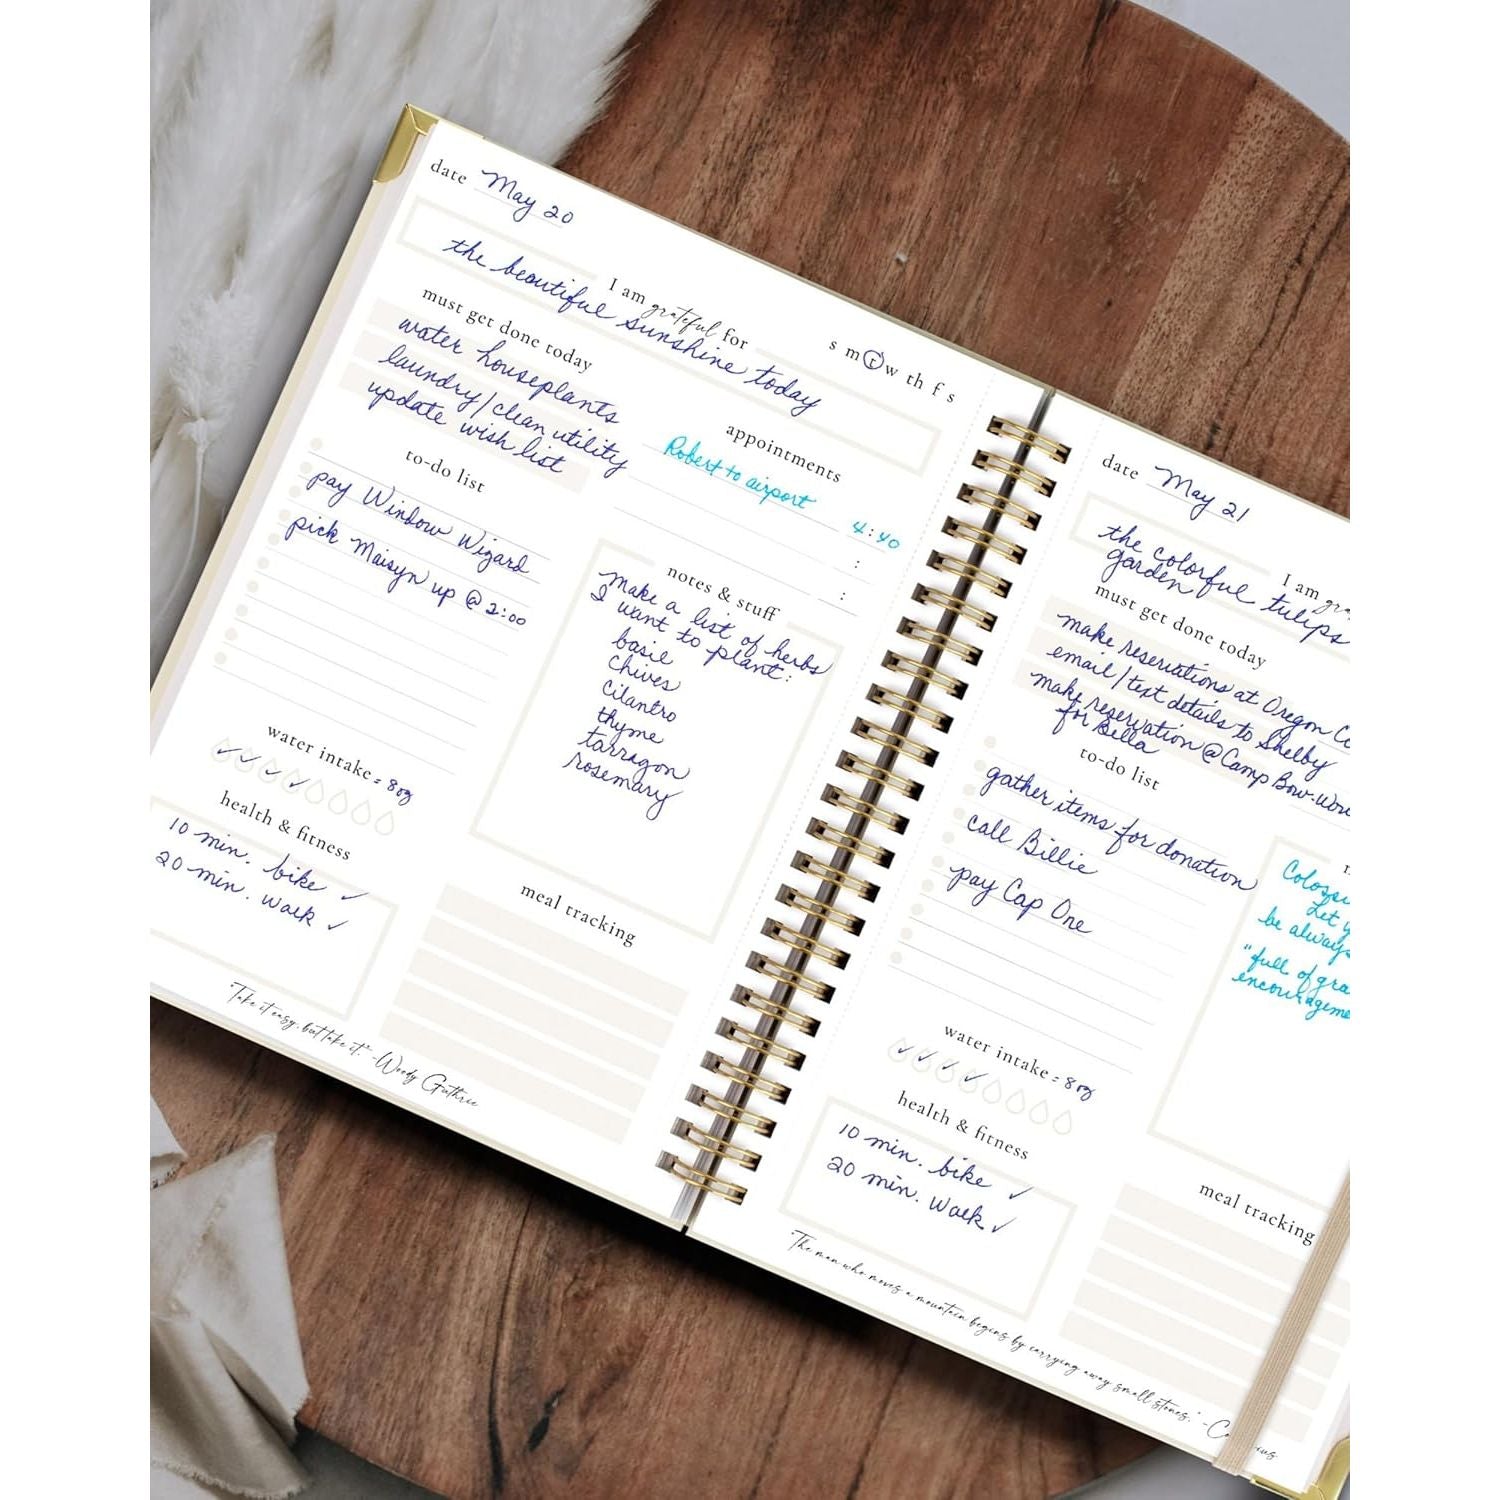 date May 20
s m t w th f s
I am grateful for
the beautiful sunshine today
must get done today
water houseplants
laundry/clean utility
update wish list
appointments
Robert to airport 4:40
:
:
to-do list
pay Window Wizard
pick Maisyn up @ 2:00
notes & stuff
make a list of herbs
I want to plant:
basil
chives
cilantro
thyme
tarragon
rosemary
water intake = 8oz
health & fitness
10 min. bike ✓
20 min. walk ✓
meal tracking
"Take it easy, but take it." -Woody Guthrie
date May 21
I am gra
the colorful tulips
garden
must get done today
make reservations at Oregon Co
email/text details to Shelby
make reservation @ Camp Bow-Wow
for Bella
to-do list
gather items for donation
call Billie
pay Cap One
Coloss
Let y
be always
"full of gra
encourageme
water intake = 8oz
health & fitness
10 min. bike ✓
20 min. walk ✓
meal tracking
"The man who moves a mountain begins by carrying away small stones." -Co